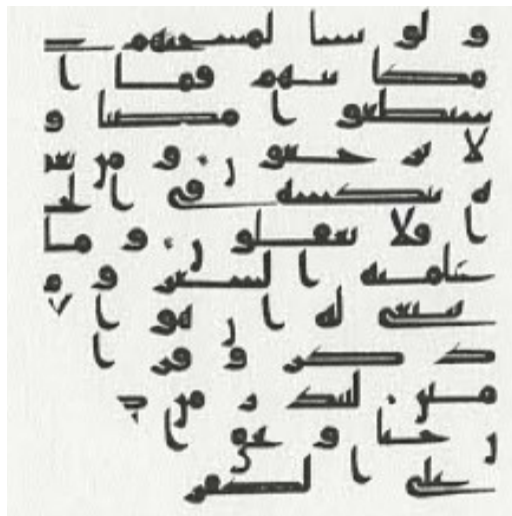 و لو نشا لمسخنهم على
مكا نتهم فما ا
ستطعوا مضيا و
لا يرجعون و من نعمر
ه ننكسه فى ا لخلق
ا فلا يعقلون و ما
علمنه ا لشعر و ما
ينبغى له ا ن هو ا لا
ذكر و قرا
ن مبين لينذر من كا
ن حيا و يحق ا لقو
ل على ا لكفرين